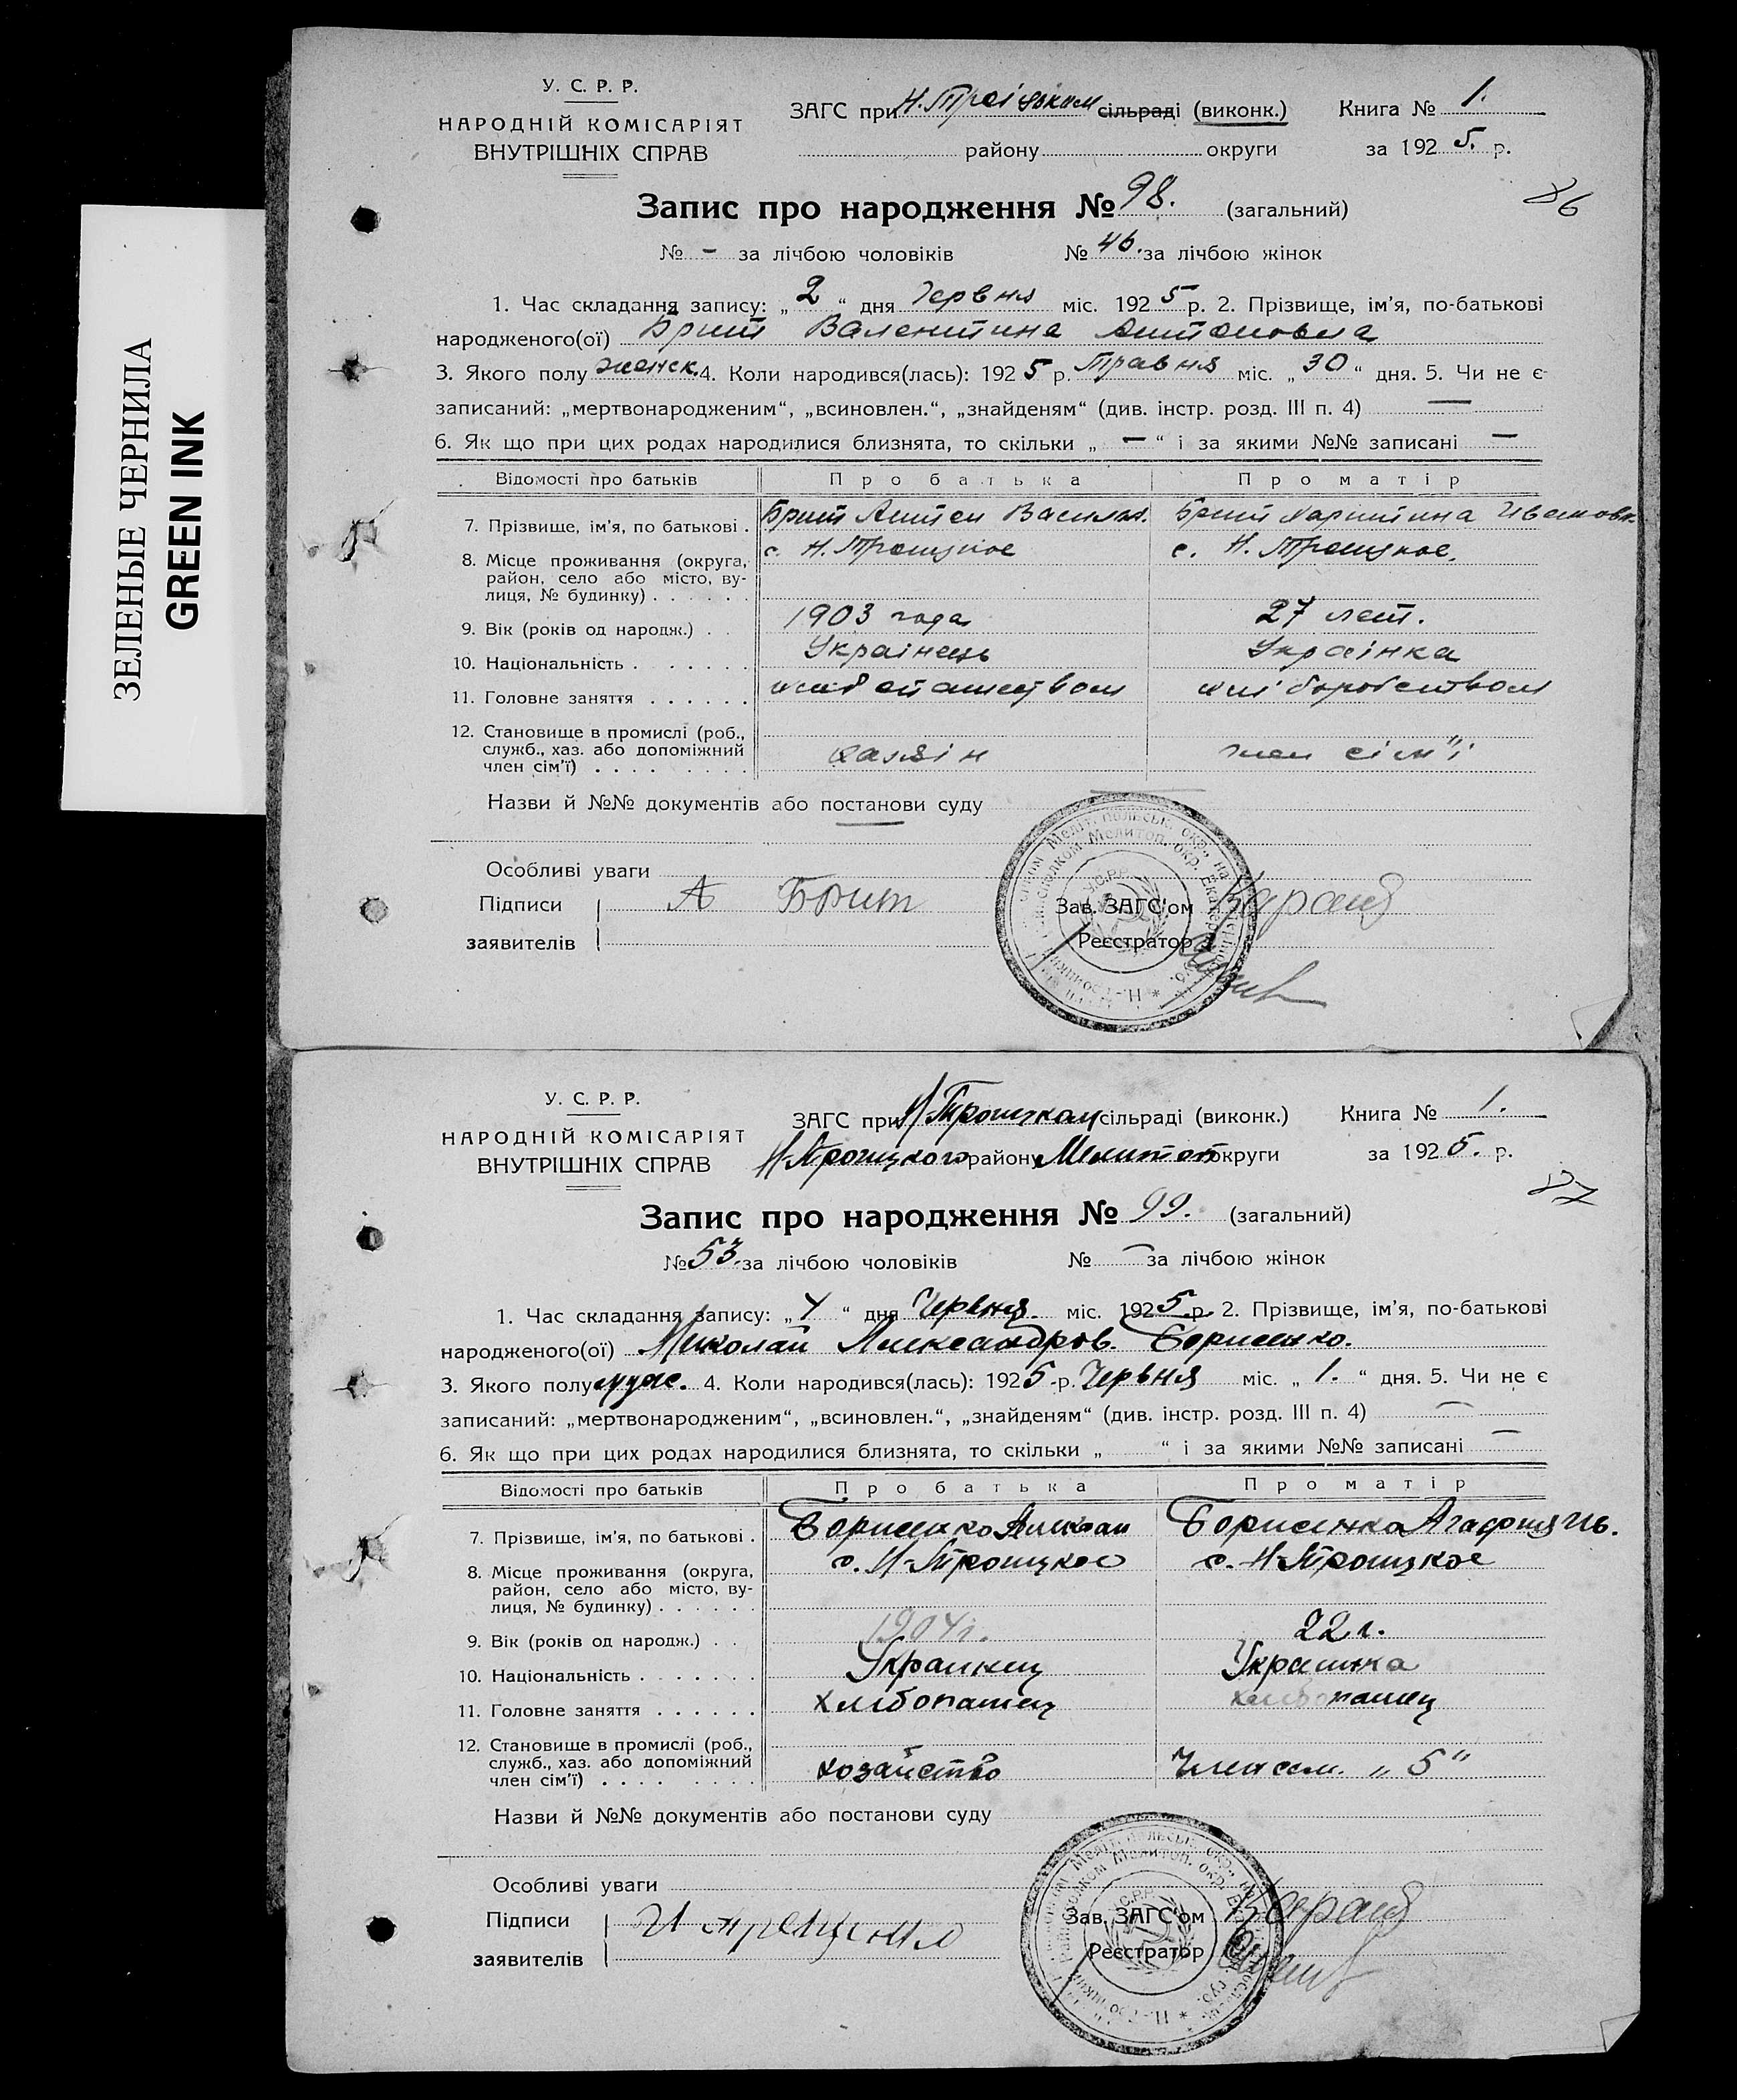 ЗЕЛЕНЫЕ ЧЕРНИЛА
GREEN INK
У. С. Р. Р.
НАРОДНІЙ КОМІСАРІЯТ
ВНУТРІШНІХ СПРАВ
ЗАГС при Н. Троіцьком сільраді (виконк.)
району округи
Книга № 1.
за 1925. р.
86
Запис про народження № 98. (загальний)
№ - за лічбою чоловіків № 46. за лічбою жінок
1. Час складання запису: „2“ дня Червня міс. 1925 р. 2. Прізвище, ім’я, по-батькові
народженого(ої) Брит Валентина Антоновна
3. Якого полу женск. 4. Коли народився(лась): 1925 р. Травня міс. „30“ дня. 5. Чи не є-
записаний: „мертвонародженим“, „всиновлен.“, „знайденям“ (див. інстр. розд. III п. 4) —
6. Як що при цих родах народилися близнята, то скільки „—“ і за якими №№ записані —
Відомості про батьків Про батька Про матір
7. Прізвище, ім’я, по батькові . Брит Антон Васильн. Брит Харитина Ивановн.
8. Місце проживання (округа, район, село або місто, ву-лиця, № будинку) . . . . . . с. Н. Троицкое с. Н. Троицкое.
9. Вік (років од народж.) . . 1903 года 27 лет.
10. Національність . . . . . . Українець Українка
11. Головне заняття . . . . . .
12. Становище в промислі (роб., служб., хаз. або допоміжний член сім’ї) . . . . . . . . хазяін член сім"ї
Назви й №№ документів або постанови суду
Особливі уваги
Підписи А Брит
заявителів
Зав. ЗАГС’ом
Реєстратор
У. С. Р. Р.
НАРОДНІЙ КОМІСАРІЯТ
ВНУТРІШНІХ СПРАВ
ЗАГС при Н Троицком сільраді (виконк.)
Н-Троицкого району Мелитоп округи
Книга № 1.
за 1925. р.
87
Запис про народження № 99. (загальний)
№ 53. за лічбою чоловіків № — за лічбою жінок
1. Час складання запису: „4“ дня Червня міс. 1925 р. 2. Прізвище, ім’я, по-батькові
народженого(ої) Николай Александров. Борисенко.
3. Якого полу муж. 4. Коли народився(лась): 1925-р. Червня міс. „1.“ дня. 5. Чи не є
записаний: „мертвонародженим“, „всиновлен.“, „знайденям“ (див. інстр. розд. III п. 4) —
6. Як що при цих родах народилися близнята, то скільки „ “ і за якими №№ записані —
Відомості про батьків Про батька Про матір
7. Прізвище, ім’я, по батькові . Борисенко Алексан Борисенко Агафия Ив.
8. Місце проживання (округа, район, село або місто, ву-лиця, № будинку) . . . . . . с. Н-Троицкое с. Н-Троицкое
9. Вік (років од народж.) . . 1904г. 22 г.
10. Національність . . . . . . Украинец Украинка
11. Головне заняття . . . . . . Хлібопашец хлібопашец
12. Становище в промислі (роб., служб., хаз. або допоміжний член сім’ї) . . . . . . . . хозайство Член сем. „5“
Назви й №№ документів або постанови суду
Особливі уваги
Підписи
заявителів
Зав. ЗАГС’ом
Реєстратор